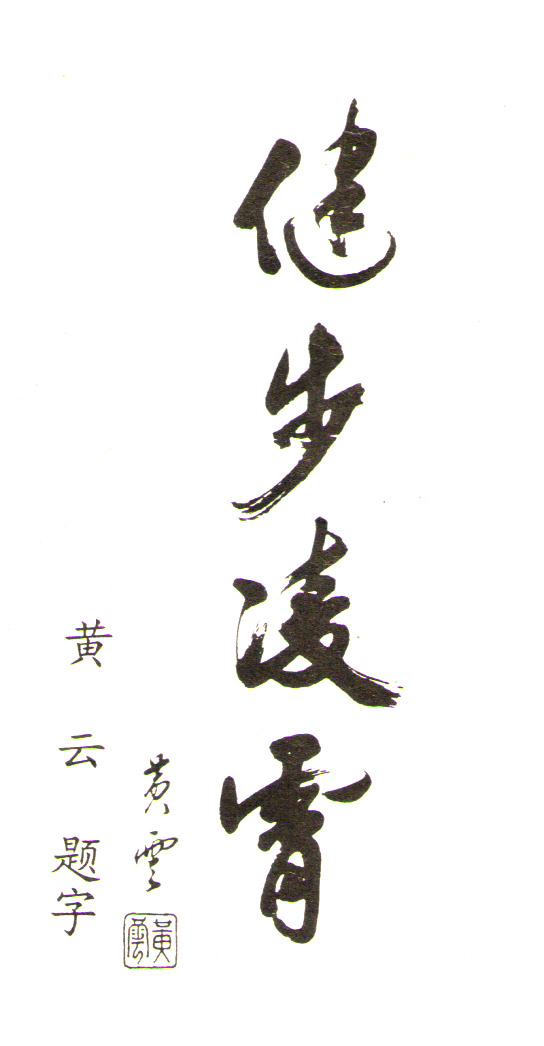 健步凌霄
黄雲
黄雲
黄云题字